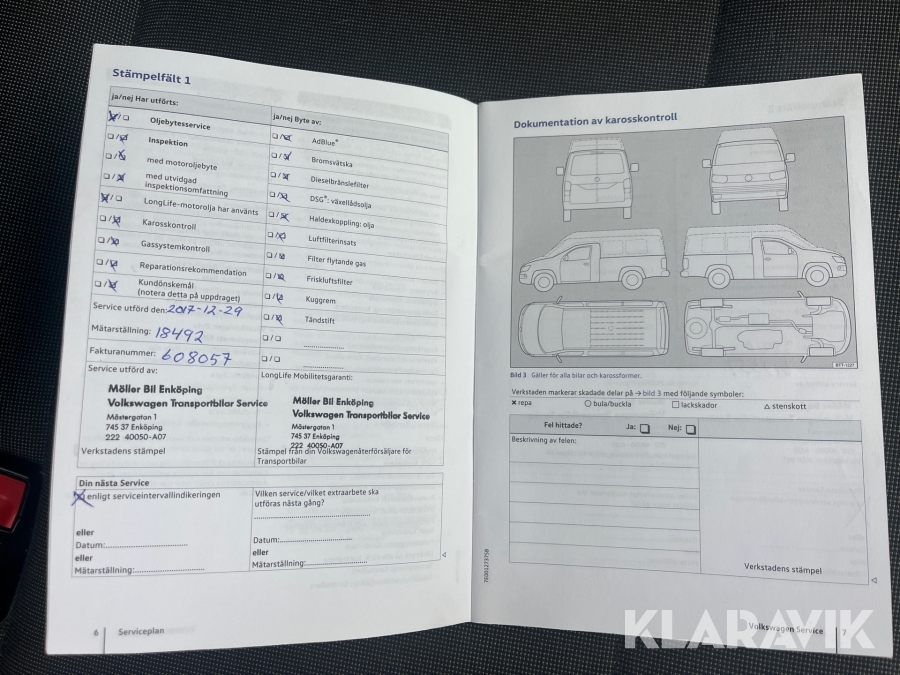 Stämpelfält 1
ja/nej Har utförts:
Oljebytesservice
Inspektion
med motoroljebyte
med utvidgad
inspektionsomfattning
LongLife-motorolja har använts
Karosskontroll
Gassystemkontroll
Reparationsrekommendation
Kundönskemål
(notera detta på uppdraget)
ja/nej Byte av:
AdBlue®
Bromsvätska
Dieselbränslefilter
DSG®: växellådsolja
Haldexkoppling: olja
Luftfilterinsats
Filter flytande gas
Friskluftsfilter
Kuggrem
Tändstift
Service utförd den: 2017-12-29
Mätarställning: 18492
Fakturanummer: 608057
Service utförd av:
Möller Bil Enköping
Volkswagen Transportbilar Service
Mästergatan 1
745 37 Enköping
222 40050-A07
Verkstadens stämpel
LongLife Mobilitetsgaranti:
Möller Bil Enköping
Volkswagen Transportbilar Service
Mästergatan 1
745 37 Enköping
222 40050-A07
Stämpel från din Volkswagenåterförsäljare för
Transportbilar
Din nästa Service
enligt serviceintervallindikeringen
eller
Datum:
eller
Mätarställning:
Vilken service/vilket extraarbete ska
utföras nästa gång?
Datum:
eller
Mätarställning:
6 Serviceplan
Dokumentation av karosskontroll
BTT-1227
Bild 3 Gäller för alla bilar och karossformer.
Verkstaden markerar skadade delar på → bild 3 med följande symboler:
× repa ○ bula/buckla □ lackskador △ stenskott
Fel hittade? Ja: Nej:
Beskrivning av felen:
Verkstadens stämpel
7G0012737SB
Volkswagen Service 7
KLARAVIK